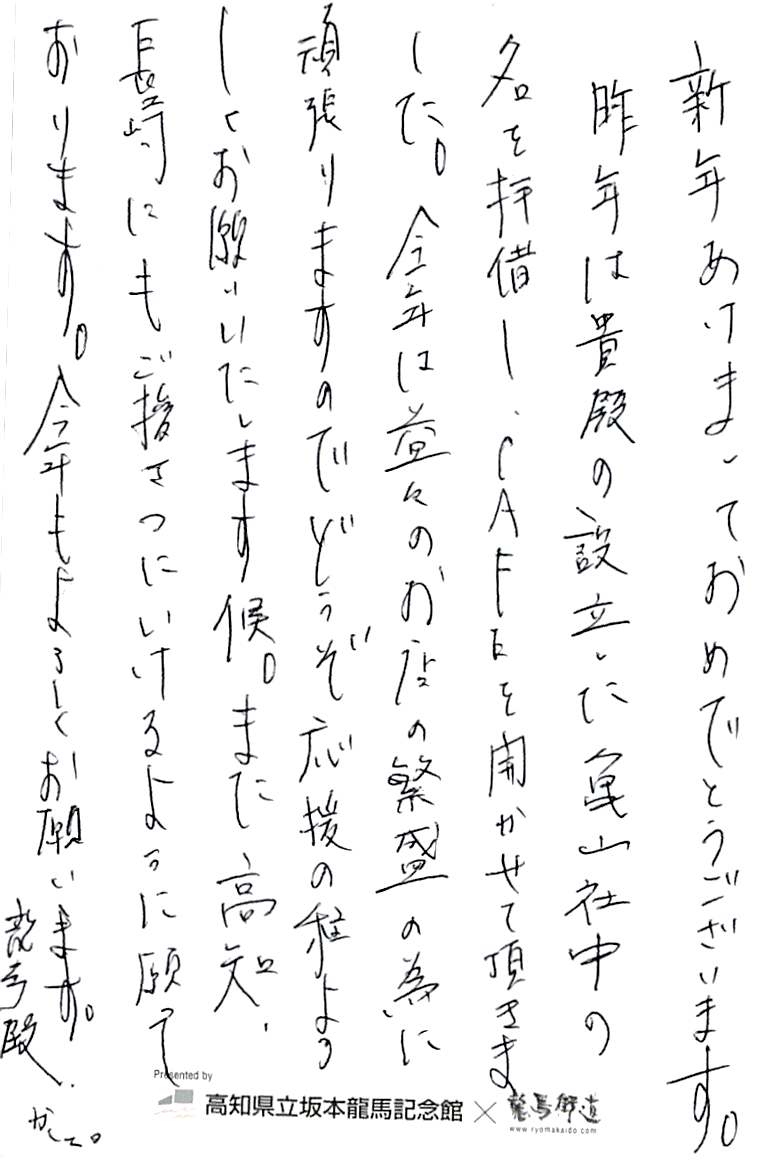 新年あけましておめでとうございます。
昨年は貴殿の設立した亀山社中の
名を拝借し、CAFEを開かせて頂きま
した。今年は益々のお店の繁盛の為に
頑張りますのでどうぞ応援の程よろ
しくお願いいたします候。また高知、
長崎にもご挨さつにいけるように願って
おります。今年もよろしくお願います。
龍馬殿、
かしこ。
Presented by
高知県立坂本龍馬記念館×龍馬街道
www.ryomakaido.com